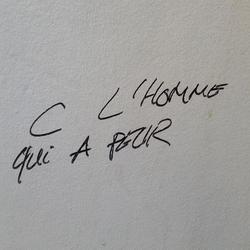 C L'HOMME
qui A PEUR